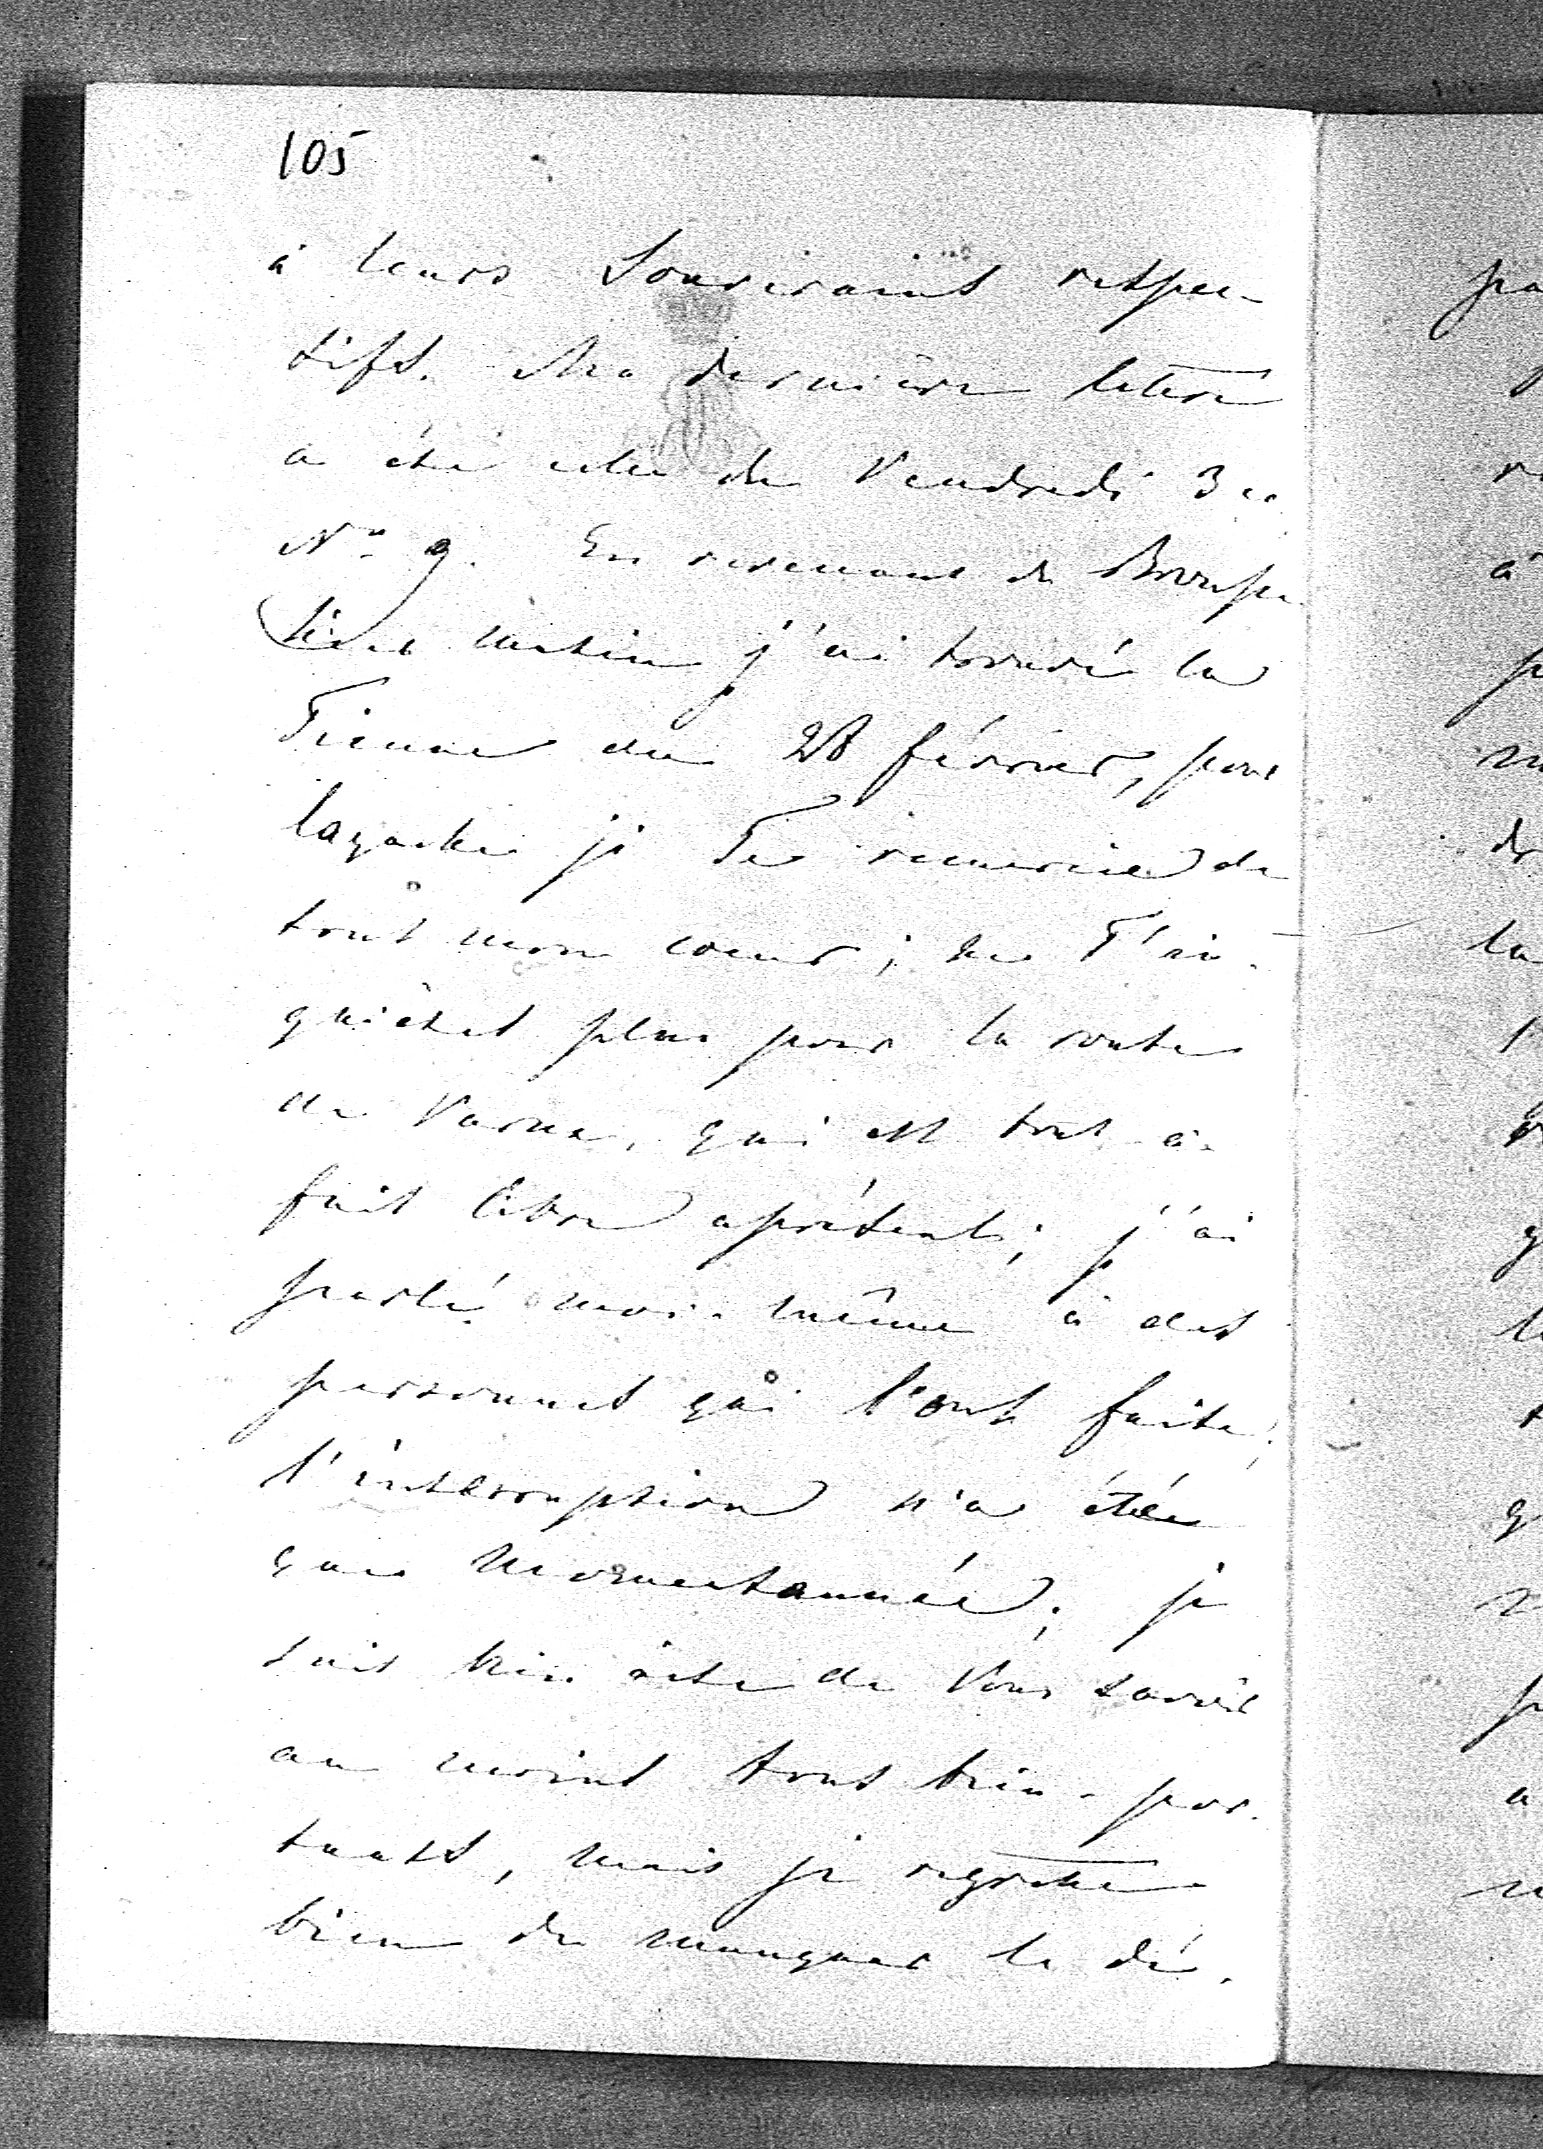 105
à leurs Souverains respec-
tifs. Ma dernière lettre
a été celle de Vendredi 3 ec.
N° 9. En revenant de Brousse
hier matin j'ai trouvé la
Tienne du 28 février, pour
laquelle je Te remercie de
tout mon coeur; ne T'in-
quiètes plus pour la route
de Varna, qui est tout-à-
fait libre aprésent; j'ai
parlé moi-même à des
personnes qui l'ont faite;
l'interruption n'a été
que momentannée; je
suis bien aise de Vous savoir
au moins tous bien-por-
tants, mais je regrette
bien de manquer le dé-